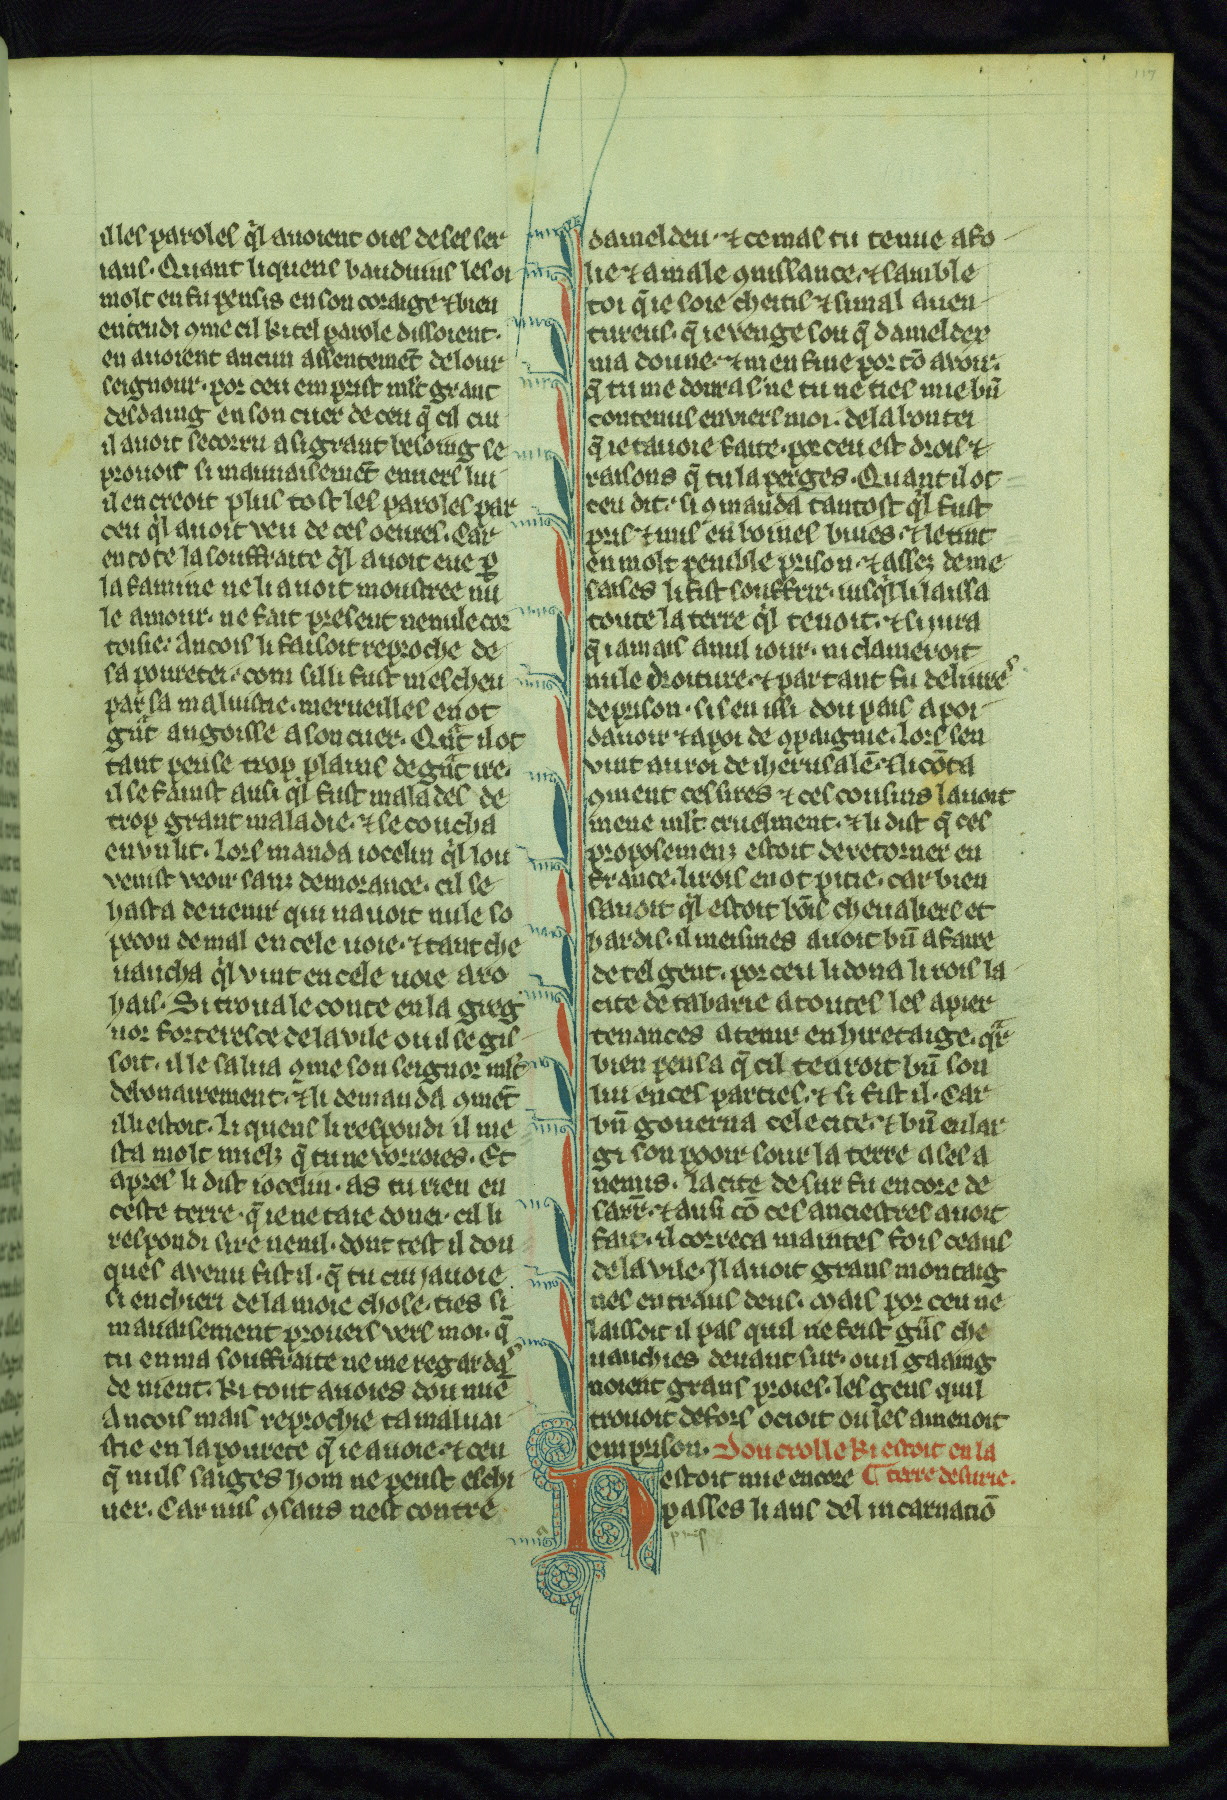 117
illes paroles q̉l auoient oies de ses ser
ians. Quant li quens bauduins les oi
molt en fu pensis en son coraige ⁊ bien
entendi ꝯme cil ki tel parole dissoient.
en auoient aucun assentemēt de lour
seignour. por ceu emprist ml̃t grant
desdaing en son cuer de ceu q̃ cil cui
il auoit secorru a si grant besoing se
prouoit si mauuaisemēt enuers lui
il en creoit plus tost les paroles par
ceu q̉l auoit veu de ces oeures. Car
en tote la souffraite q̉l auoit eue ꝑ
la famine ne li auoit monstree nu
le amour. ne fait present ne nule cor
toisie. Ancois li faisoit reproche de
sa pouretei. com silli fust mescheu
par sa maluistie. merueilles en ot
gñt angoisse a son cuer. Qñt il ot
tant pense trop plains de gñt ire.
il se fainst ausi q̉l fust malades de
trop grant maladie. ⁊ se coucha
en vn lit. Lors manda iocelin q̉l lou
venist veoir sanz demorance. cil se
hasta de uenir qui nauoit nule so
pecon de mal en cele uoie. ⁊ tant che
uaucha q̉l vint en cele uoie a ro
hais. Si troua le conte en la greg
nor forteresce de la vile ou il se gis
soit. il le salua ꝯme son seignor ml̃t
debonairement. ⁊ li demanda ꝯmēt
illi estoit. Li quens li respondi il me
sta molt mielz q̃ tu ne vorroies. Et
apres li dist iocelin. as tu rien en
ceste terre. q̃ ie ne taie donei. cil li
respondi sire nenil. dont test il don
ques auenu fist il. q̃ tu cui iauoie
si enchieri de la moie chose. ties si
mauaisement proueis vers moi. q̃
tu en ma souffraite ne me regardas
de nient. ki tout auoies dou mien
Ancois mais reprochie ta maluai
stie en la pourete q̃ ie auoie. ⁊ ceu
q̃ nuls saiges hom ne peust eschi
uer. Car nus ꝯsaus nest contre
dameldeu. ⁊ ce mas tu tenue a fo
lie ⁊ a male ꝯnissance. ⁊ samble
toi q̃ ie soie cheitis ⁊ si mal auen
tureus. q̃ ie renge sou q̃ dameldex
ma donne. ⁊ men fuie por tō auoir.
q̃ tu me donras. ne tu ne ties mie bn̄
contenus enuiers moi. de la bontei
q̃ ie tauoie faite. por ceu est drois ⁊
raisons q̃ tu la perges. Quant il ot
ceu dit. si ꝯmanda tantost q̉l fust
pris ⁊ mis en boines buies. ⁊ le tint
en molt penible prison. ⁊ assez de me
saises li fist souffrir. iusq̉l li laissa
toute la terre q̉l tenoit. ⁊ si iura
q̃ iamais a nul iour. ni clameroit
nule droiture. ⁊ par tant fu deliures
de prison. sis en issi dou pais a poi
dauoir ⁊ a poi de ꝯpaignie. lors sen
vint au roi de iherusalē. ⁊ li cōta
ꝯment ces sires ⁊ ces cousins lauoit
mene ml̃t cruelment. ⁊ li dist q̃ ces
proposemenz estoit de retorner en
france. li rois en ot pitie. car bien
sauoit q̉l estoit bōs cheualiers et
hardis. il meismes auoit bn̄ a faire
de tel gent. por ceu li dona li rois la
cite de tabarie a toutes les apier
tenances a tenir en hiretaige. qr̃
bien pensa q̃ cil tenroit bn̄ son
liu en ces parties. ⁊ si fist il. Car
bn̄ gouerna cele cite. ⁊ bn̄ enlar
gi son pooir sour la terre a ses a
nemis. La cite de sur fu encore de
sarr̃. ⁊ ausi cō ces anciestres auoit
fait. il correca maintes fois ceaus
de la vile. Il auoit grans montaig
nes entraus deus. mais por ceu ne
laissoit il pas quil ne feist gñs che
uauchies deuant sur. ou il gaaing
noient grans proies. les gens quil
trouoit defors ocioit ou les amenoit
en prison. Dou crolle ki estoit en la
⸿ terre de surie.
Nestoit mie encore
passes li ans del incarnatiō